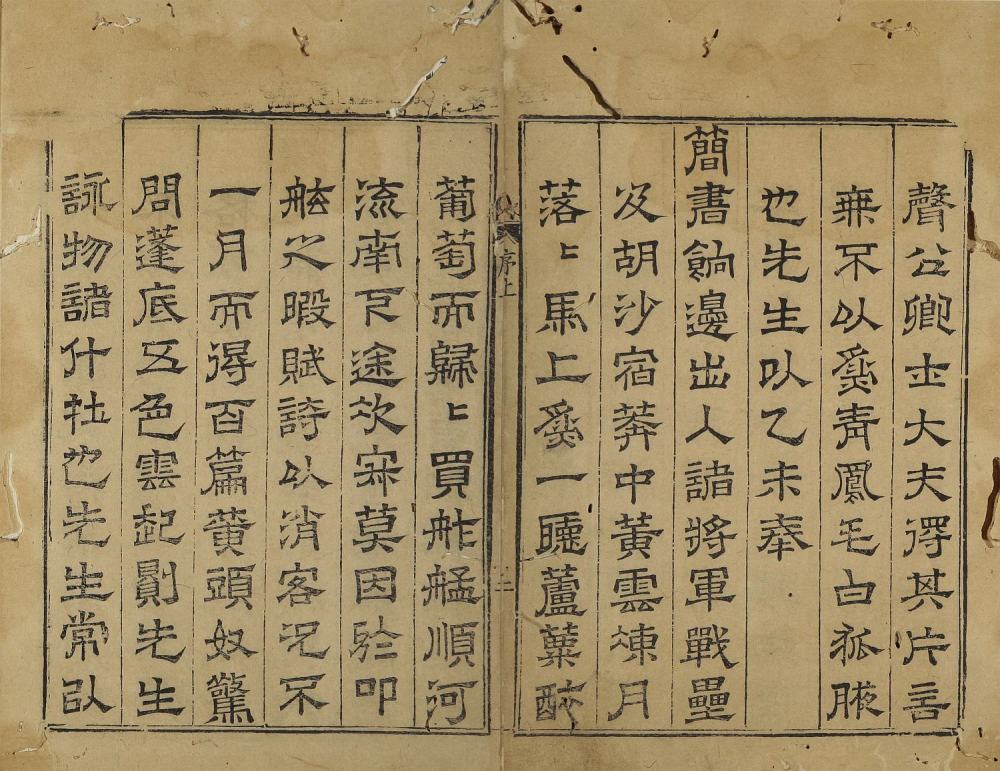 聲公卿士大夫得其片言
無不以爲青鳳毛白狐腋
也先生以乙未奉
簡書餉邊出入諸將軍戰壘
及胡沙宿莽中黃雲煉月
落〻馬上爲一聽蘆葉醉
序上
葡萄而歸〻買舴艋順河
流南下途次寂莫因於叩
舷之暇賦詩以消客况不
一月而得百篇黃頭奴驚
問蓬底五色雲起則先生
詠物諸什在也先生常以